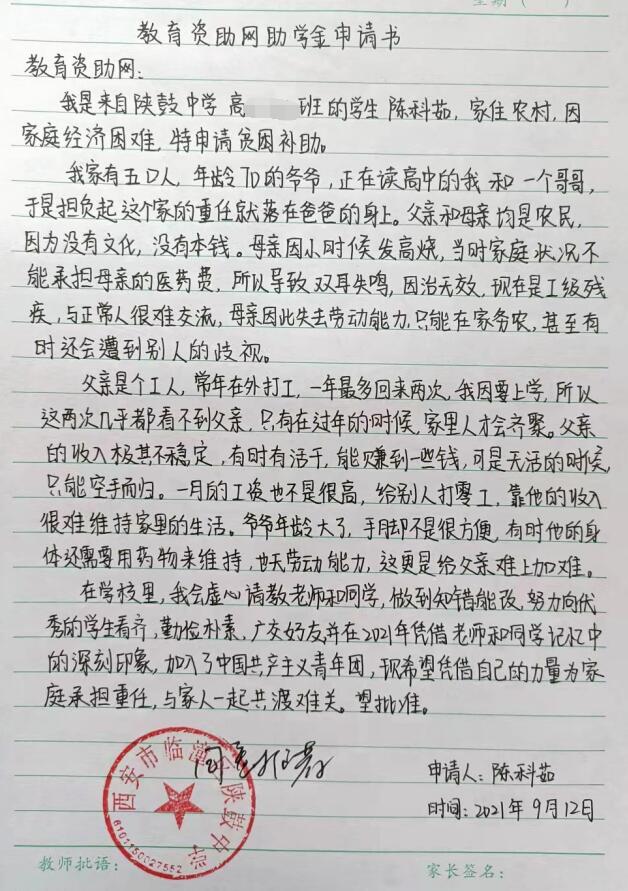 教育资助网助学金申请书
教育资助网:
我是来自陕鼓中学 高 班的学生 陈科茹, 家住农村, 因
家庭经济困难, 特申请贫困补助。
我家有五口人, 年龄70的爷爷, 正在读高中的我 和 一个哥哥,
于是担负起这个家的重任就落在爸爸的身上。父亲和母亲均是农民,
因为没有文化, 没有本钱。母亲因小时候发高烧, 当时家庭状况不
能承担母亲的医药费, 所以导致双耳失鸣, 因治无效, 现在是I级残
疾, 与正常人很难交流, 母亲因此失去劳动能力, 只能在家务农, 甚至有
时还会遭到别人的歧视。
父亲是个工人, 常年在外打工, 一年最多回来两次, 我因要上学, 所以
这两次几乎都看不到父亲, 只有在过年的时候, 家里人才会齐聚。父亲
的收入极其不稳定, 有时有活干, 能赚到一些钱, 可是无活的时候,
只能空手而归。一月的工资也不是很高, 给别人打零工, 靠他的收入
很难维持家里的生活。爷爷年龄大了, 手脚不是很方便, 有时他的身
体还需要用药物来维持, 也无劳动能力, 这更是给父亲难上加难。
在学校里, 我会虚心请教老师和同学, 做到知错能改, 努力向优
秀的学生看齐, 勤俭朴素, 广交好友, 并在2021年凭借老师和同学记忆中
的深刻印象, 加入了中国共产主义青年团, 现希望凭借自己的力量为家
庭承担重任, 与家人一起共渡难关。望批准。
西安市临潼区陕鼓中学
6101150027552
申请人: 陈科茹
时间: 2021年9月12日
教师批语:
家长签名: